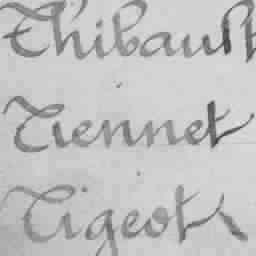 Thibault
Tiennet
Tigeot